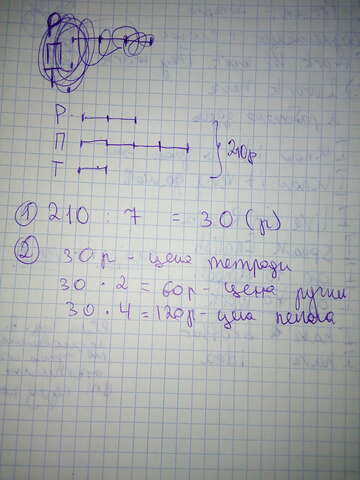 Р
П
Т
210р
① 210 : 7 = 30 (р)
② 30р - цена тетради
30 · 2 = 60р - цена ручки
30 · 4 = 120р - цена пенала